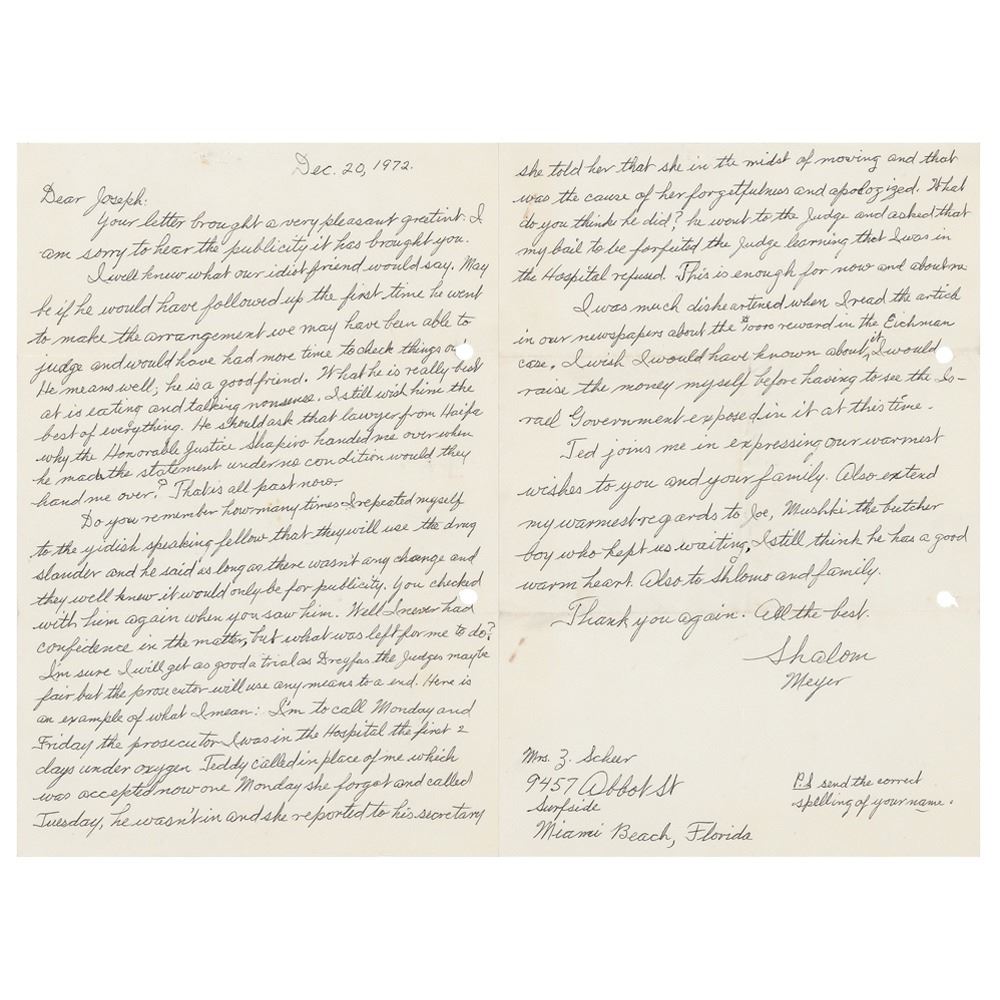 Dec. 20, 1972.
Dear Joseph:
Your letter brought a very pleasant greetint. I
am sorry to hear the publicity it has brought you.
I well knew what our idiot friend would say. May
be if he would have followed up the first time he went
to make the arrangement we may have been able to
judge and would have had more time to check things
He means well, he is a good friend. What he is really best
at is eating and talking nonsense. I still wish him the
best of everything. He should ask that lawyer from Haifa
why the Honorable Justice Shapiro handed me over when
he made the statement under no condition would they
hand me over? That is all past now.
Do you remember how many times I repeated myself
to the yidish speaking fellow that they will use the drug
slander and he said as long as there wasn't any change and
they well knew it would only be for publicity. You checked
with him again when you saw him. Well I never had
confidence in the matter, but what was left for me to do?
I'm sure I will get as good a trial as Dreyfas the Judges maybe
fair but the prosecutor will use any means to a end. Here is
an example of what I mean: I'm to call Monday and
Friday the prosecutor I was in the Hospital the first 2
days under oxygen Teddy called in place of me which
was accepted now one Monday she forgot and called
Tuesday, he wasn't in and she reported to his secretary
she told her that she in the midst of moving and that
was the cause of her forgetfulness and apologized. What
do you think he did? he went to the Judge and asked that
my bail to be forfeited the Judge learning that I was in
the Hospital refused. This is enough for now and about me
I was much disheartened when I read the article
in our newspapers about the reward in the Eichman
case. I wish I would have known about it, I would
raise the money myself before having to see the Is-
rail Government exposed in it at this time.
Ted joins me in expressing our warmest
wishes to you and your family. Also extend
my warmest regards to Joe, Mushki the butcher
boy who kept us waiting, I still think he has a good
warm heart. Also to Shlomo and family.
Thank you again. All the best.
Shalom
Meyer
Mrs. Z. Scheur
9457 Abbot St
Surfside
Miami Beach, Florida
P.S send the correct
spelling of your name.